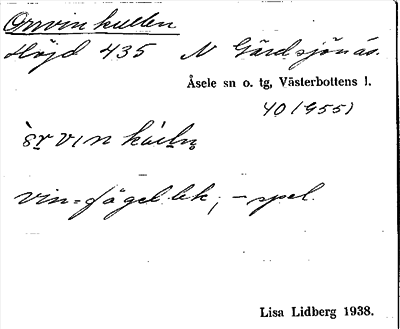 Orrvinkullen
Höjd 435 N Gärdsjönäs.
Åsele sn o. tg, Västerbottens l.
40 (955)
vin = fågellek; - spel.
Lisa Lidberg 1938.